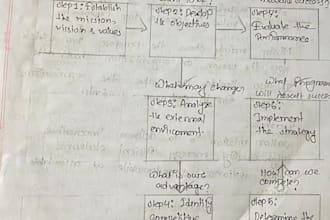 Step 1: Establish
the mission,
vision & values
Step 2: Develop
the objectives
Step 7:
Evaluate the
Performance.
What may change?
What programs
will result success
Step 3: Analyze
the external
environment.
Step 6:
Implement
the strategy
What is ours
advantage?
How can we
compete?
Step 4: Identify
competitive
Step 5:
Determine the